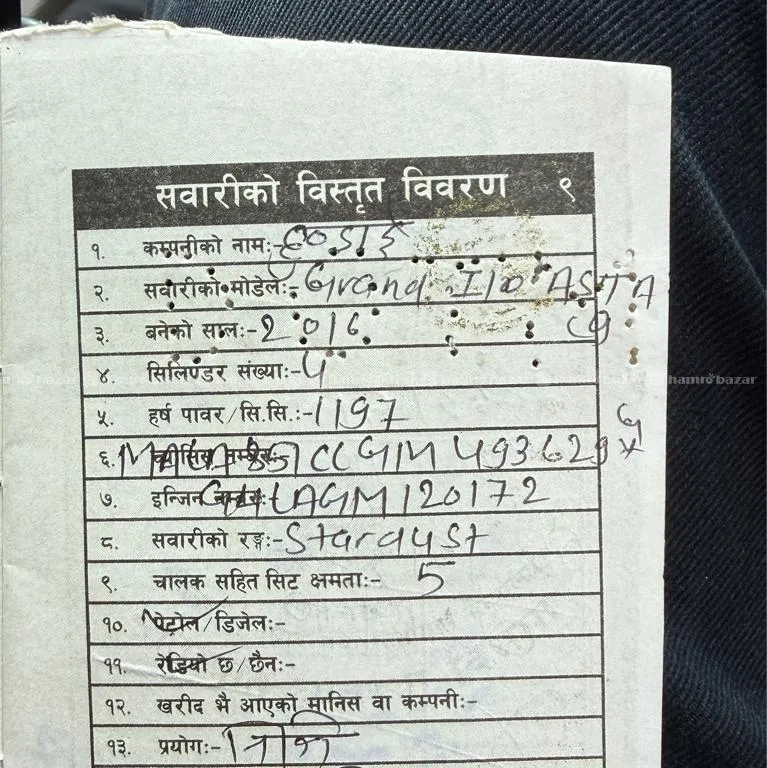 सवारीको विस्तृत विवरण ९
१. कम्पनीको नाम:- हुण्डाई
२. सवारीको मोडेल:- Grand I10 ASTA
३. बनेको साल:- 2016
४. सिलिण्डर संख्या:- 4
५. हर्ष पावर/सि.सि.:- 1197
६. CCGIM493629
७. इन्जिन नम्बर:- AGM120172
८. सवारीको रङ्ग:- Stardust
९. चालक सहित सिट क्षमता:- 5
१०. पेट्रोल/डिजेल:-
११. रेडियो छ/छैन:-
१२. खरीद भै आएको मानिस वा कम्पनी:-
१३. प्रयोग:- निजि
hamrobazar